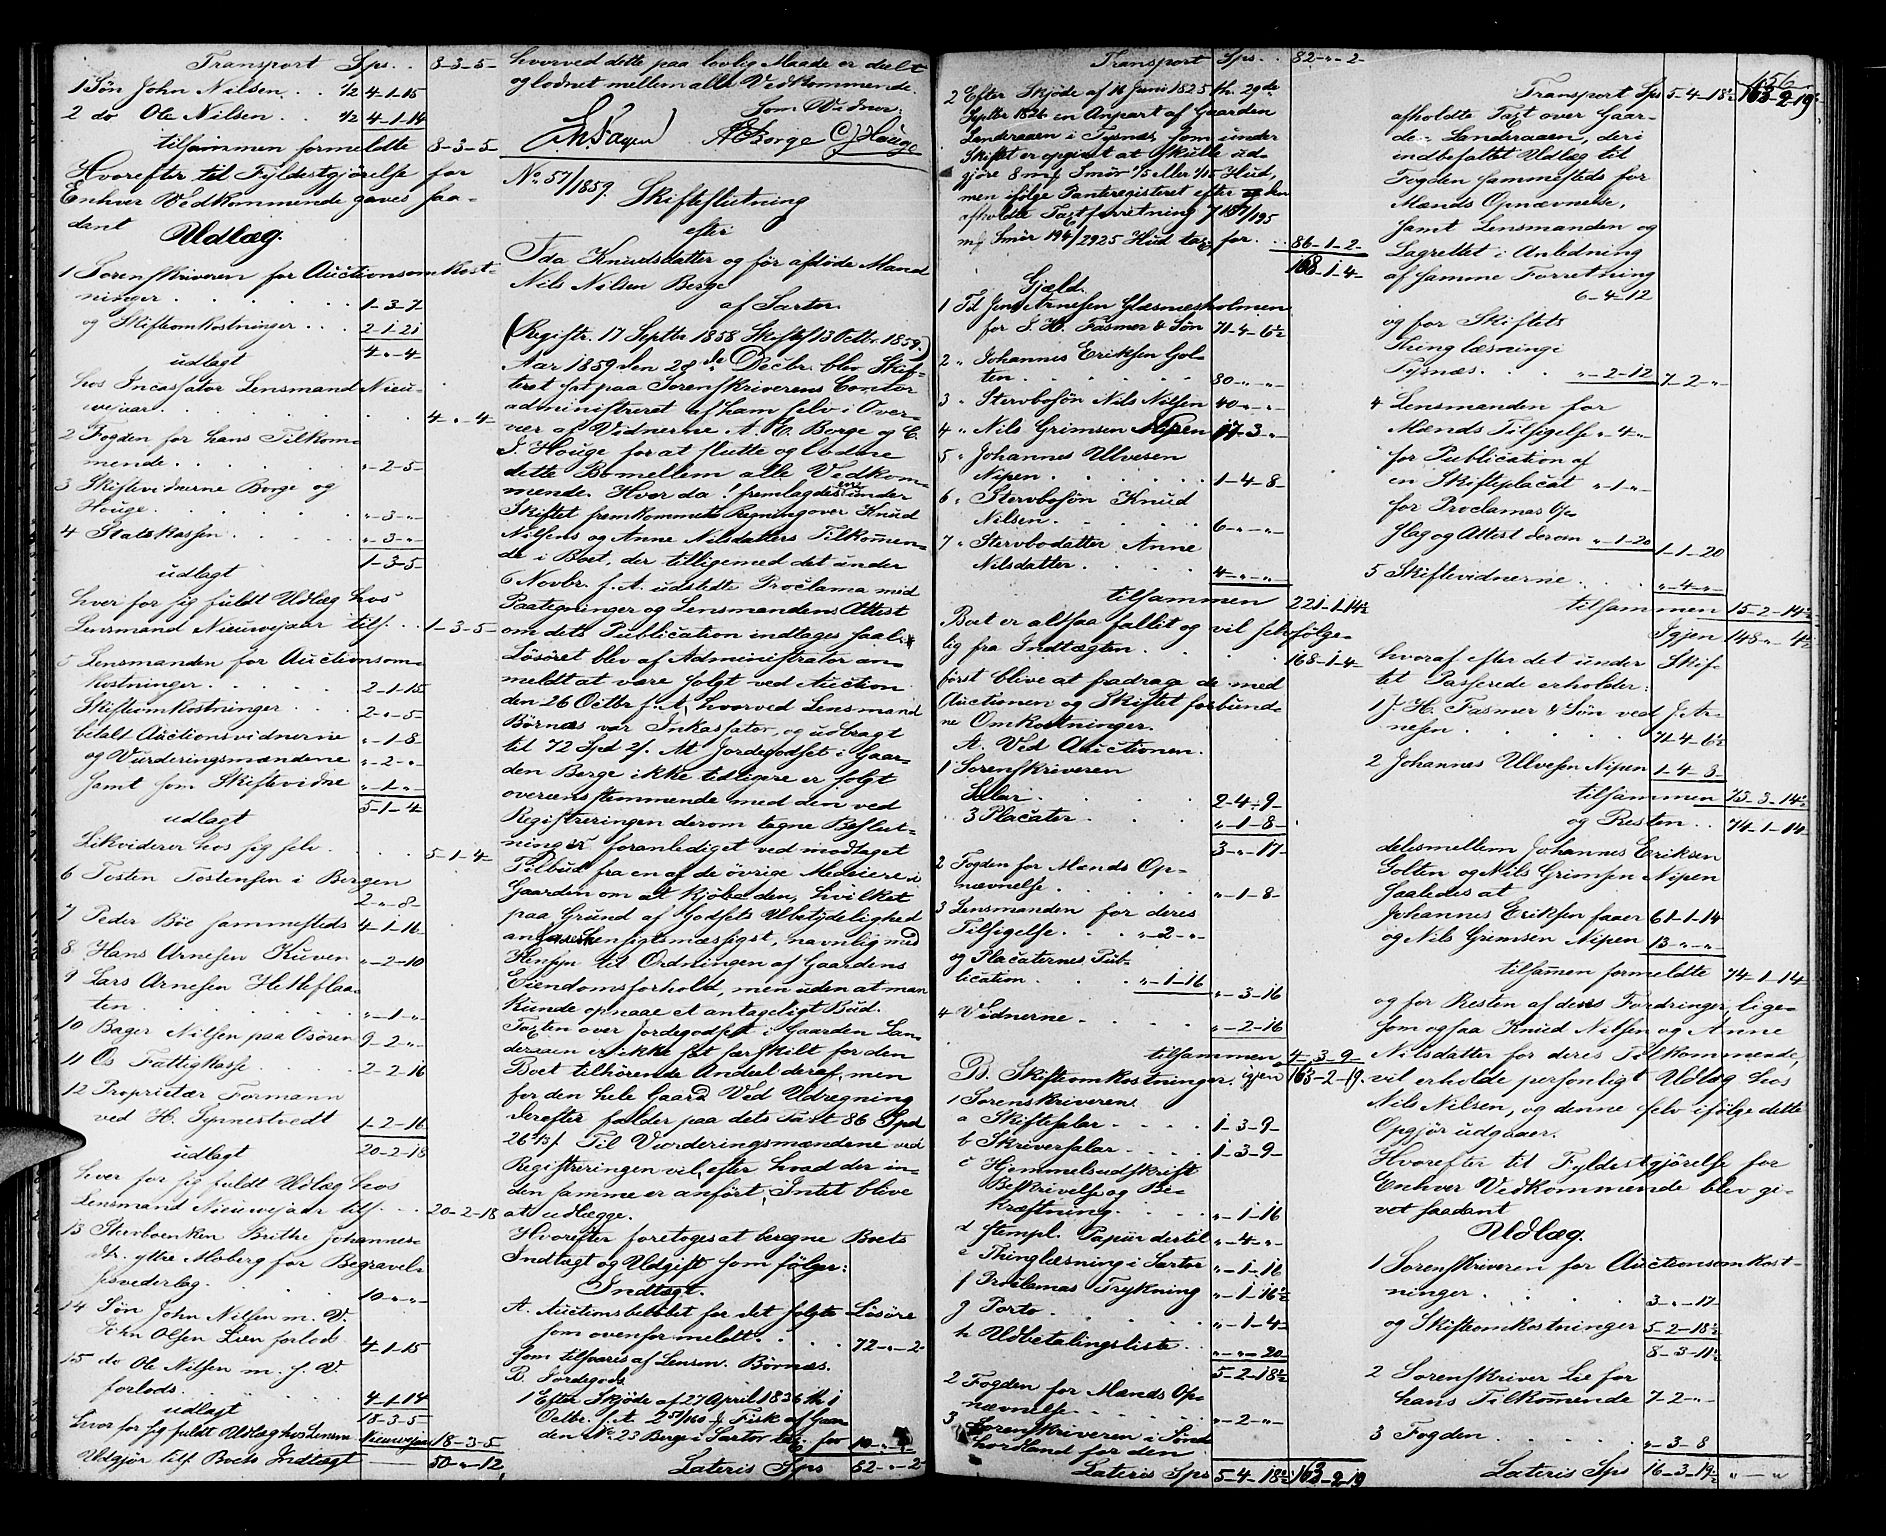 Transport Sps. . 8-3-5-
1 Søn John Nilsen. . . 1/2 4-1-15
2 do Ole Nilsen . . 1/2 4-1-14
tilsammen formeldte 8-3-5
Hvorefter til Fyldestgjørelse for
Enhver Vedkommende gaves saa-
dant
Udlæg.
1 Sorenskriveren for Auctionsomkost-
ninger . . . . 1-3-7
og Skifteomkostninger . . . 2-1-21
udlagt 4-"-4
hos Incassator Lensmand Nieu-
wejaar. . . . . 4-"-4
2 Fogden for hans Tilkom-
mende . . . . "-2-5
3 Skiftevidnerne Borge og
Houge . . . . "-3-"
4 Statskassen . . . "-3-"
udlagt 1-3-5
hver for sig fuldt Udlæg hos
Lensmand Nieuwejaar tils. . . 1-3-5
5 Lensmanden for Auctionsom-
kostninger . . . . 2-1-15
Skifteomkostninger . . . 2-"-5
betalt Auctionsvidnerne "-1-8
og Vurderingsmændene "-2-"
samt som Skiftevidne "-1-"
udlagt 5-1-4
Likviderer hos sig selv . . . 5-1-4
6 Tosten Tostensen i Bergen
2-"-8
7 Peder Böe sammesteds 4-1-16
8 Hans Arnesen Kuven "-2-10
9 Lars Arnesen Hetleflaa-
ten . . . . "-1-"
10 Bager Nilsen paa Osøren 9-2-"
11 Os Fattigkasse . . . 2-2-16
12 Proprietær Formann
ved H. Tynnestvedt 1-2-16
udlagt 20-2-18
hver for sig fuldt Udlæg hos
Lensmand Nieuwejaar tils. . . 20-2-18
13 Sterboenken Brithe Johannes-
dtr. yttre Moberg for Begravel-
sesvederlag . . . 10-"-"
14 Søn John Nilsen m. V.
John Olsen Lien forlods 4-1-15
15 do Ole Nilsen m. s. V.
forlods . . . . 4-1-14
udlagt 18-3-5
hver for sig fuldt Udlæg hos Lensm. Nieuwejaar 18-3-5
Udgjør tils. Boets Indtægt 50-"-12
hvorved dette paa lovlig Maade er deelt
og lodnet mellem alle Vedkommende.
Som Vidner
A C Borge C J Houge
No 57/1859. Skifteslutning
efter
Ida Knudsdatter og før afdøde Mand
Nils Nilsen Berge
af Sartor.
(Registr. 17 Septbr 1858 Skifte 13 Octbr. 1859.)
Aar 1859 den 28de Decbr. blev Skif-
teret sat paa Sorenskriverens Contor
administreret af ham selv i Over-
vær af Vidnerne A. C. Borge og C.
J. Houge for at slutte og lodne
dette Bo mellem alle Vedkom-
mende. Hvor da! fremlagdes under
Skiftet fremkommen Regning over Knud
Nilsens og Anne Nilsdatters Tilkommen-
de i Boet, der tilligemed det under
6 Novbr. f. A. udstedte Proclama med
Paategninger og Lensmandens Attest
om dets Publication indtages saal.
Løsøret blev af Administrator an-
meldt at være solgt ved Auction
den 26 Octbr f. A., hvorved Lensmand
Börnæs var Inkassator, og udbragt
til 72 Spd 2s. At Jordegodset i Gaar-
den Berge ikke tidligere er solgt
overensstemmende med den ved
Registreringen derom tagne Beslut-
ning er foranlediget ved modtaget
Tilbud fra en af de øvrige Medeiere i
Gaarden om at kjöbe den, hvilket
paa Grund af Godsets Ubetydelighed
ansaaes hensigtsmæssigst, navnlig med
Hensyn til Ordningen af Gaardens
Eiendomsforhold, men uden at man
kunde opnaae et antageligt Bud.
Taxten over Jordegodset i Gaarden Lan-
deraaen er ikke sat særskilt for den
Boet tilhörende Andeel deraf, men
for den hele Gaard. Ved Udregning
derefter falder paa dets Taxt 86 Spd
26 1/2 s. Til Vurderingsmændene ved
Registreringen vil, efter hvad der in-
den samme er anført, Intet blive
at udlægge.
Hvorefter foretoges at beregne Boets
Indtægt og Udgift som følger:
Indtægt.
A. Auctionsbeløbet for det solgte Løsøre
som ovenfor meldt. . . . 72-"-2
som tilsvares af Lensm. Börnæs.
B. Jordegods
1 Efter Skjöde af 27 April 1836 th. j
Octbr. s. A. 2 57/160 f Fisk af Gaar
den No 23 Berge i Sartor tax. for 10-"-"
Lateris Sps 82-"-2
Transport Sps. . . 82-"-2-
2 Efter Skjöde af 16 Juni 1825 th. 29de
Septbr 1826 en Anpart af Gaarden
Landeraaen i Tysnæs, som under
Skiftet er opgivet at skulle ud-
gjøre 8 ms Smør 1/5 eller 1/15 Hud,
men ifölge Panteregisteret efter den
afholdte Taxtforretning 7 187/195
ms Smör 194/2925 Hud tax. for . . 86-1-2-
168-1-4-
Gjæld.
1 Til Jens Arnesen Glesnæsholmen
for J. H. Fasmer & Søn 71-4-6 1/2
2 " Johannes Eriksen Gol-
ten . . . . 80-"-"
3 " Stervbosön Nils Nilsen 40-"-"
4 " Nils Grimsen Nipen 17-3-"
5 " Johannes Ulvesen
Nipen . . . . 1-4-8
6 " Stervbosön Knud
Nilsen . . . . 6-"-"
7 " Stervbodatter Anne
Nilsdatter . . . 4-"-"
tilsammen 221-1-14 1/2
Boet er altsaa fallit og vil selvfølge-
lig fra Indtægten . . . 168-1-4
først blive at fradrage de med
Auctionen og Skiftet forbund-
ne Omkostninger.
A. Ved Auctionen.
1 Sorenskriveren
Salær . . . . 2-4-9-
3 Placater . . . "-1-8-
3-"-17-
2 Fogden for Mænds Op-
nævnelse . . . "-1-8-
3 Lensmanden for deres
Tilsigelse . . . "-2-"
og Placaternes Pub-
lication . . . "-1-16 "-3-16
4 Vidnerne . . . "-2-16
tilsammen 4-3-9-
B. Skifteomkostninger. igjen 163-2-19.
1 Sorenskriveren
a Skiftesalær . . . 1-3-9-
b Skriversalær . . . 1-3-9-
c Hjemmelsudskrift
Beskrivelse og Be-
kræftning . . . "-1-16
d stempl. Papiir dertil "-4-"
e Thinglæsning i Sartor "-1-16
f Proclamas Trykning "-1-16 1/2
g Porto . . . . "-1-4-
h Udbetalingsliste . . "-"-20-
5-2-18 1/2
2 Fogden for Mænds Op-
nævnelse . . . "-2-"
3 Sorenskriveren i Sönd-
hordland for den
Lateris Sps 5-4-18 1/2 163-2-19
456
Transport Sps 5-4-18 1/2 163-2-19
afholdte Taxt over Gaar-
den Landeraaen, deri
indbefattet Udlæg til
Fogden sammesteds for
Mænds Opnævnelse,
samt Lensmanden og
Lagrettet i Anledning
af samme Forretning
6-4-12
og for Skiftets
Thinglæsning i
Tysnæs . . . "-2-12 7-2-"
4 Lensmanden for
Mænds Tilsigelse "-4-"
for Publication af
en Skifteplacat "-1-"
for Proclamas Op-
slag og Attest derom "-1-20 1-1-20
5 Skiftevidnerne . . . "-4-"
tilsammen 15-2-14 1/2
Igjen 148-"-4 1/2
hvoraf efter det under Skif-
tet Passerede erholder:
1 J. H. Fasmer & Søn ved J. Ar-
nesen . . . . 71-4-6 1/2
2 Johannes Ulvesen Nipen 1-4-8
tilsammen 73-3-14 1/2
og Resten . . 74-1-14
deles mellem Johannes Eriksen
Golten og Nils Grimsen Nipen
saaledes at
Johannes Eriksen faaer 61-1-14
og Nils Grimsen Nipen 13-"-"
tilsammen formeldte 74-1-14
og for Resten af deres Fordringer, lige-
som ogsaa Knud Nilsen og Anne
Nilsdatter for deres Tilkommende,
vil erholde personligt Udlæg hos
Nils Nilsen, og denne selv ifölge dette
Opgjør udgaaer.
Hvorefter til Fyldestgjørelse for
Enhver Vedkommende blev gi-
vet saadant
Udlæg.
1 Sorenskriveren for Auctionsomkost-
ninger . . . . 3-"-17
og Skifteomkostninger 5-2-18 1/2
8-3-11 1/2
2 Sorenskriver Lie for
hans Tilkommende 7-2-"
3 Fogden . . . . "-3-8
Lateris Sps 16-3-19 1/2 "-"-"